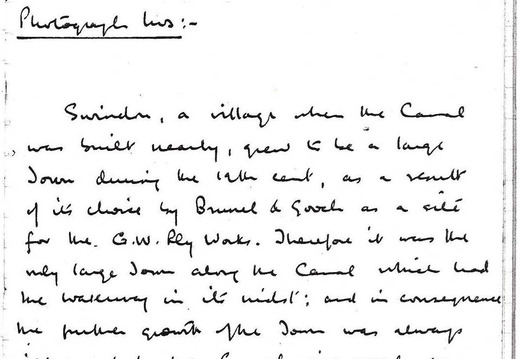 Photograph nos:-
Swindon, a village when the Canal
was built nearby, grew to be a large
Town during the 19th cent, as a result
of its choice by Brunel & Gooch as a site
for the G.W. Rly Works. Therefore it was the
only large Town along the Canal which had
the waterway in its midst; and in consequence
the further growth of the Town was always